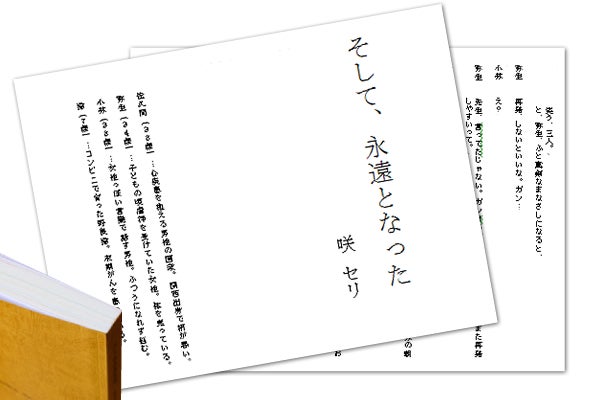 そして、永遠となった
咲 セリ
佐久間（３８歳）…心疾患を抱える男性の医者。関西出身で柄が悪い。
弥生（２４歳）…子どもの頃虐待を受けていた女性。体を売っている。
小林（３８歳）…女性っぽい言葉で話す男性。ふつうになれず悩む。
笑う、三人。
と、弥生、ふと真剣なまなざしになると、
弥生　再発、しないといいな。ガン…
小林　え？
弥生　先生、言ってたじゃない。ガン
しやすいって。
また再発